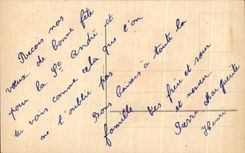 Reçois nos
vœux de bonne fête
pour la St André et
tu vois comme cela que l'on
ne t'oublie pas
Gros baisers à toute la
famille des frère et sœur
et neveu
Pierre Marguerite
Henri